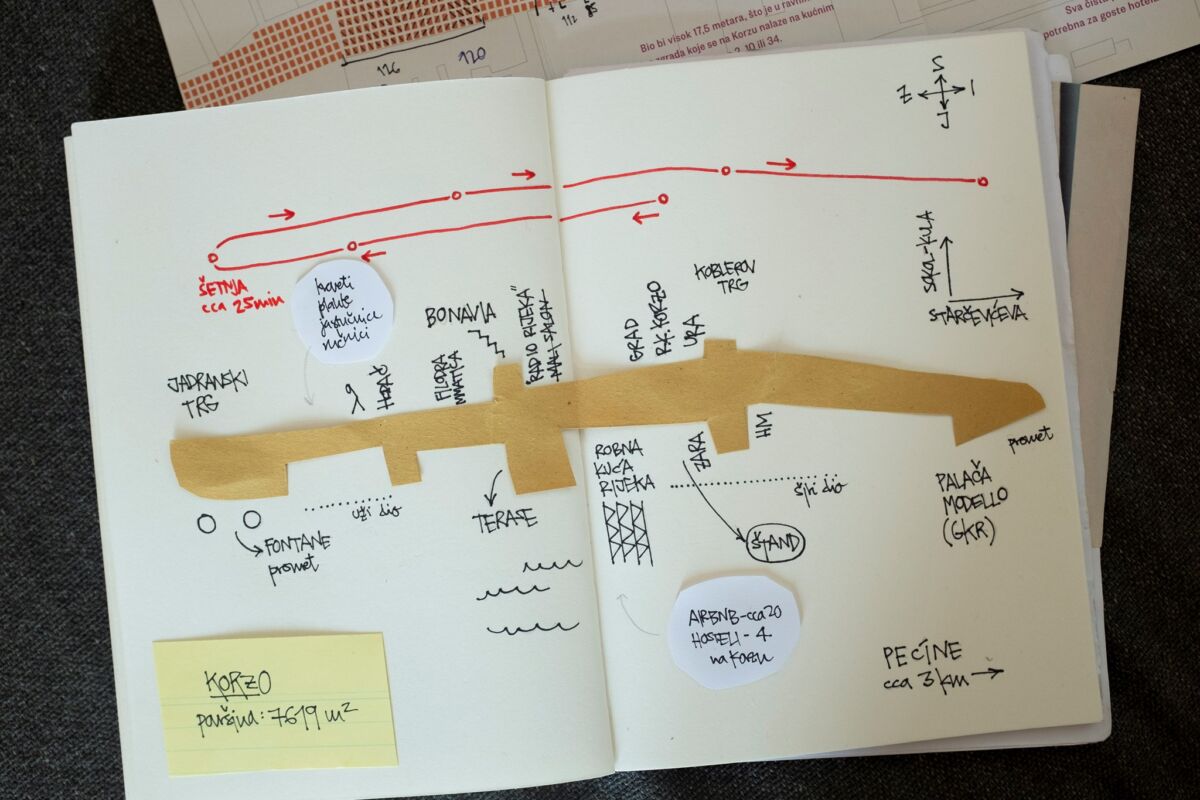 126
120
112
Bio bi visok 17,5 metara, što je u ravnini
zgrada koje se na Korzu nalaze na kućnim
10 ili 34.
Sva čista
potrebna za goste hotela
S
Z I
J
ŠETNJA
cca 25min
kreveti
plahte
jastučnice
ručnici
JADRANSKI
TRG
BONAVIA
FILODRA
MMATICA
"RADIO RIJEKA"
MALI SALON
GRAD
R.K. KORZO
URA
KOBLEROV
TRG
SIKA-KULA
STARČEVIĆEVA
FONTANE
promet
uži dio
TERASE
ROBNA
KUĆA
RIJEKA
ZARA
HM
širi dio
ŠTAND
promet
PALAČA
MODELLO
(GKR)
AIRBNB-cca 20
HOSTELI - 4
na Korzu
PEĆINE
cca 3 km
KORZO
površina: 7619 m²